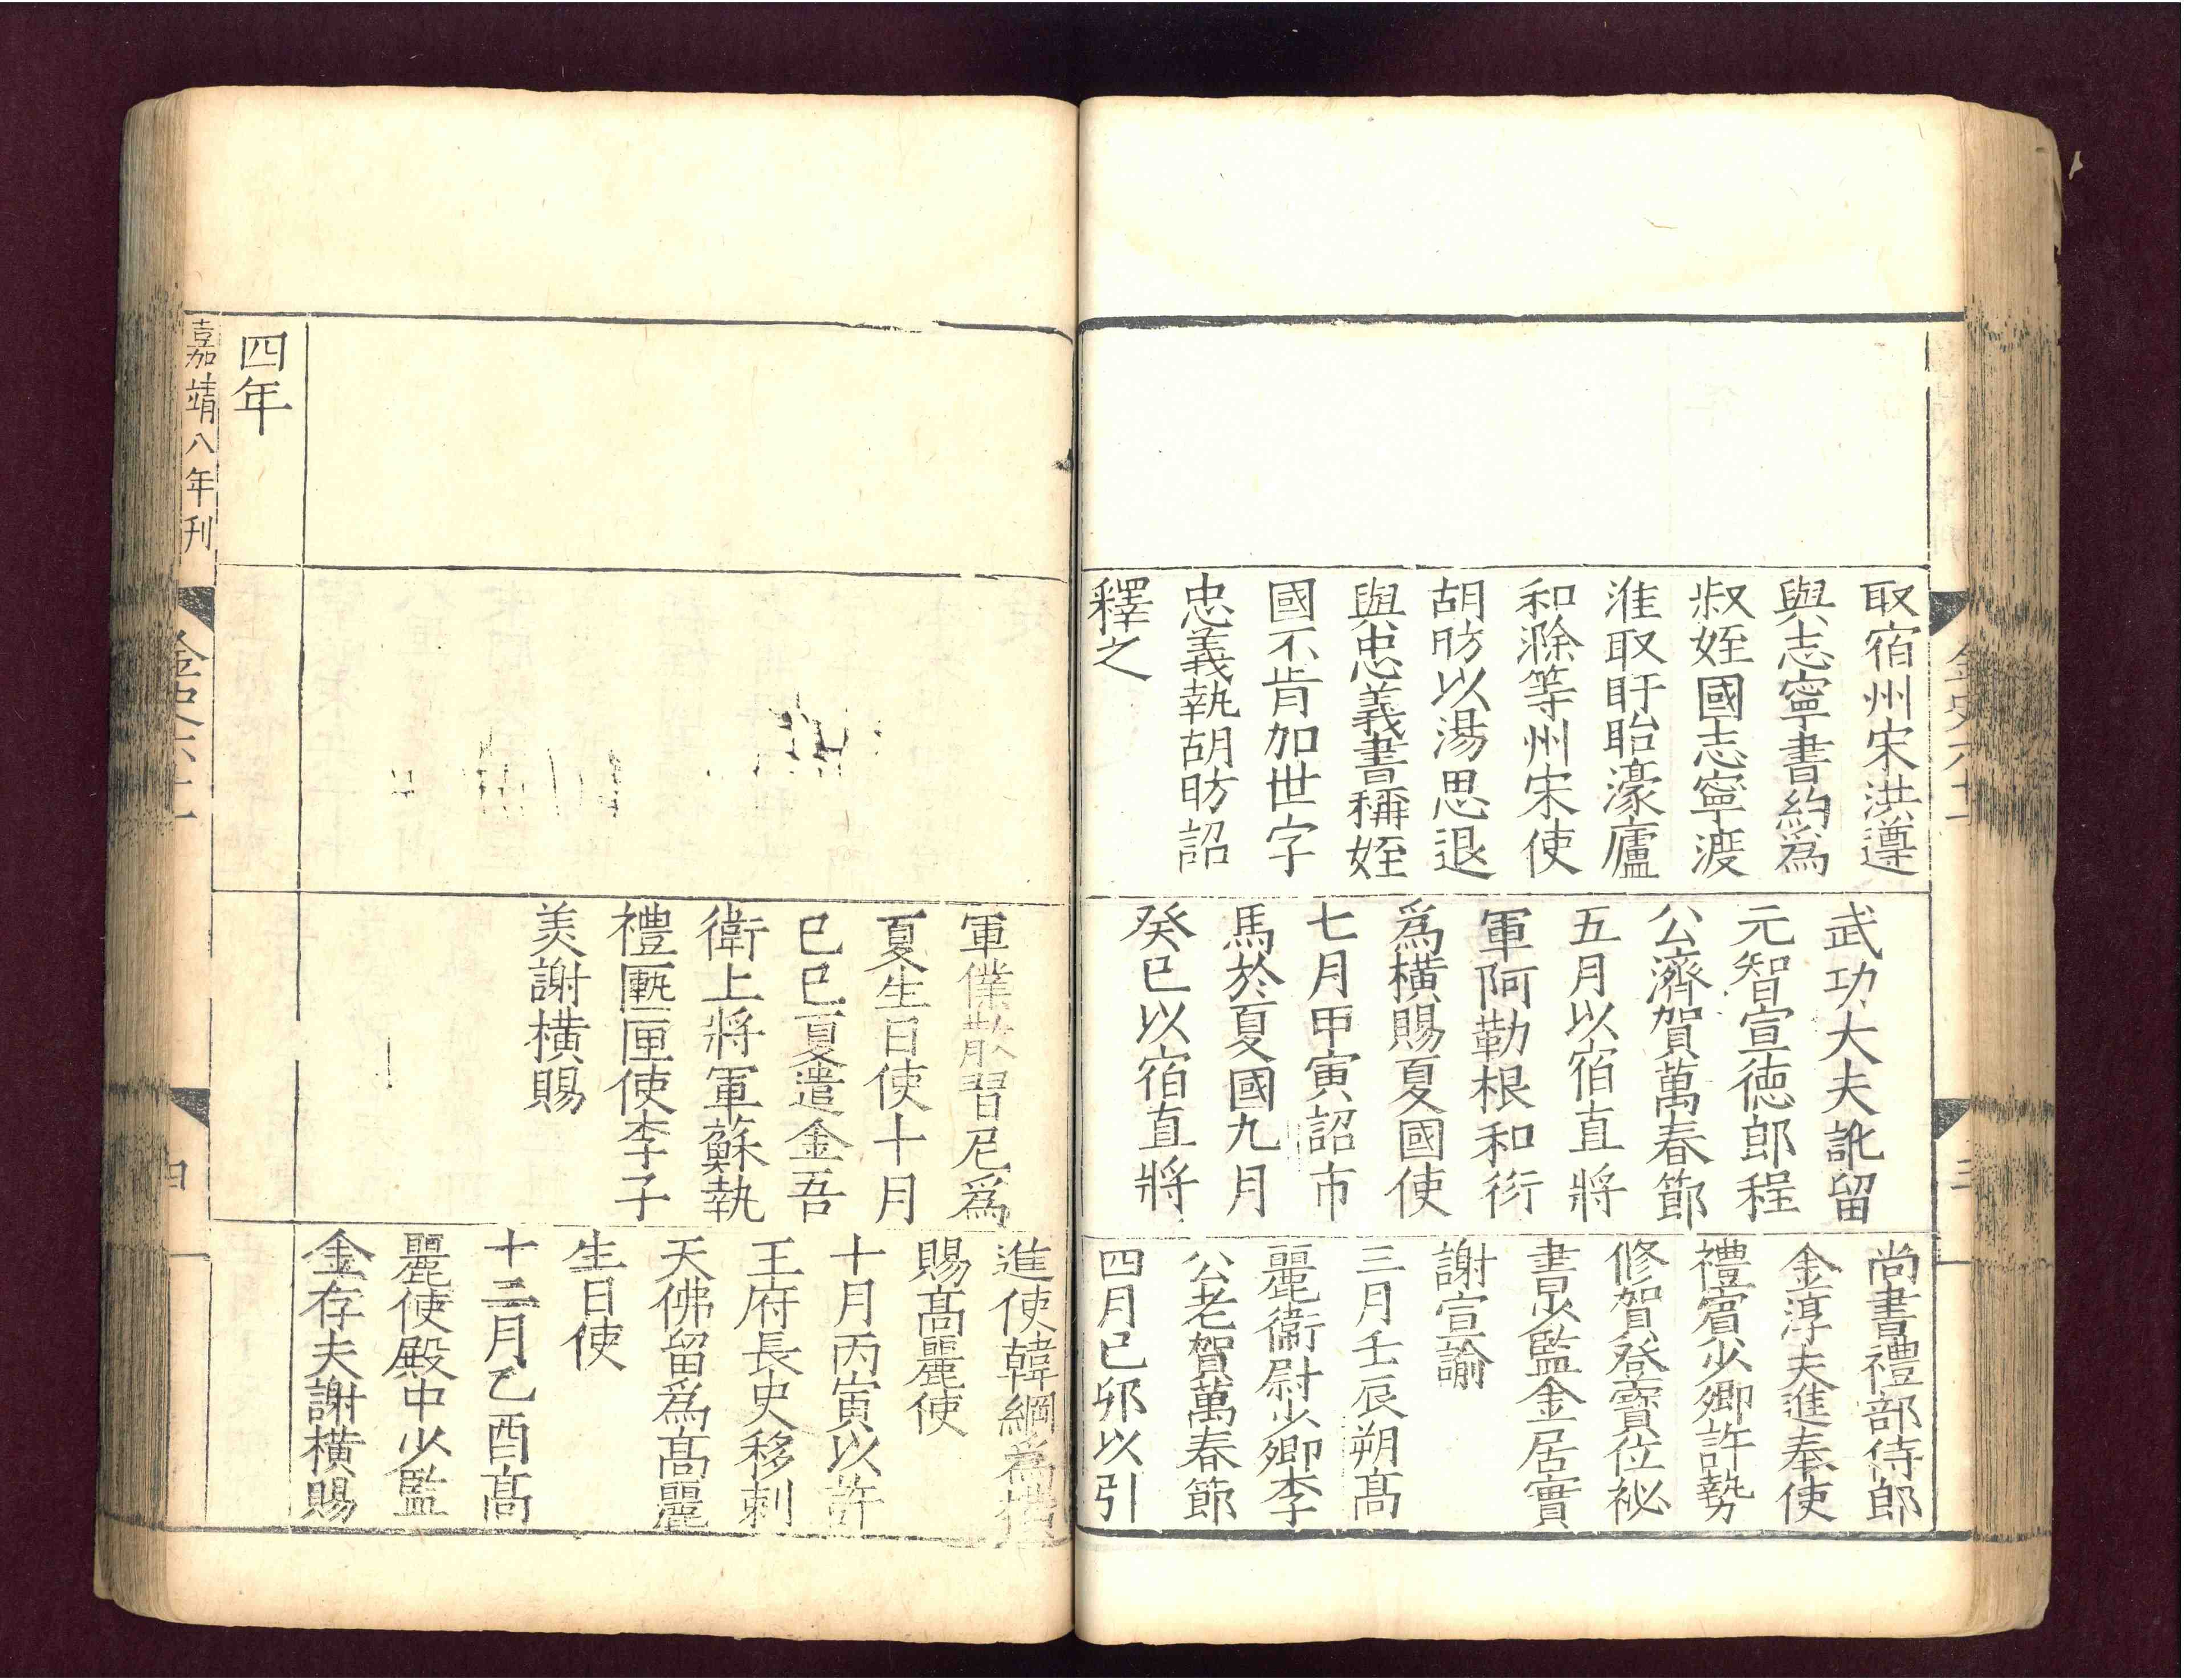 取宿州宋洪遵
與志寧書約爲
叔姪國志寧渡
淮取盱眙濠廬
和滁等州宋使
胡昉以湯思退
與忠義書稱姪
國不肯加世字
忠義執胡昉詔
釋之
武功大夫訛留
元智宣德郎程
公濟賀萬春節
五月以宿直將
軍阿勒根和衍
爲橫賜夏國使
七月甲寅詔市
馬於夏國九月
癸巳以宿直將
尚書禮部侍郎
金淳夫進奉使
禮賓少卿許勢
修賀登寶位祕
書少監金居實
謝宣諭
三月壬辰朔髙
麗衞尉少卿李
公老賀萬春節
四月己卯以引
軍僕散習尼爲
夏生日使十月
己巳夏遣金吾
衛上將軍蘇執
禮匭匣使李子
美謝橫賜
進使韓綱爲橫
賜髙麗使
十月丙寅以許
王府長史移剌
天佛留爲髙麗
生日使
十二月乙酉髙
麗使殿中少監
金存夫謝橫賜
四年
嘉靖八年刊
金史六十一
四